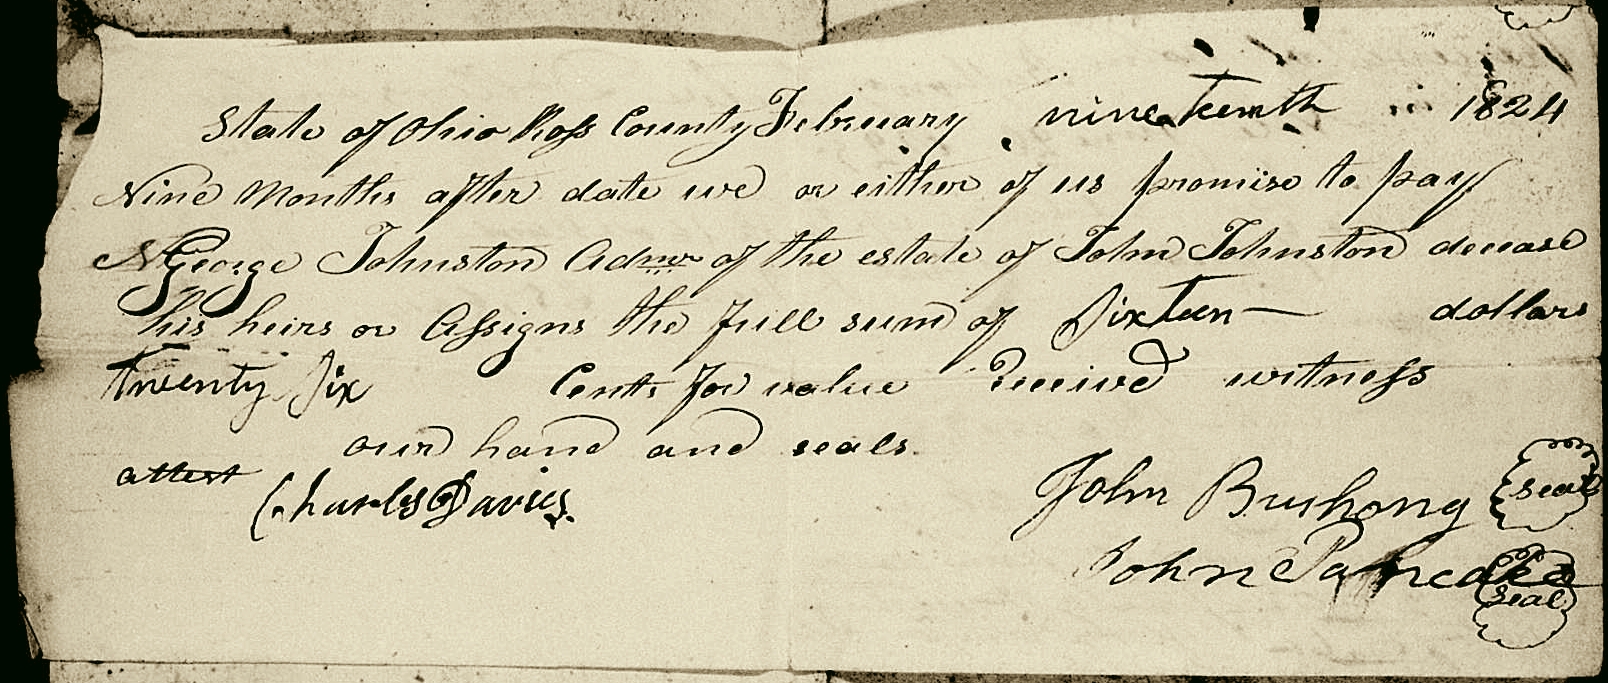 State of Ohio Ross County February nineteenth 1824
Nine Months after date we or either of us promise to pay
George Johnston Admr of the estate of John Johnston decease
his heirs or Assigns the full sum of Sixteen — dollars
twenty Six Cents for value Received witness
our hand and seals.
attest
Charles Davies.
John Bushong seal
John Pancake seal